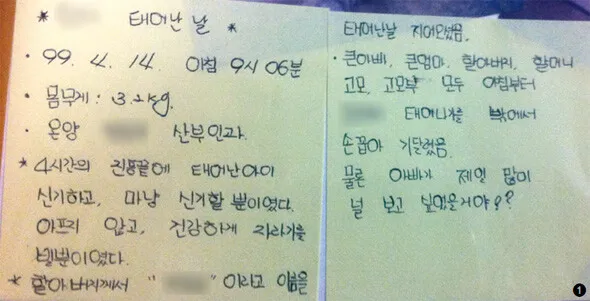 * 태어난 날 *
· 99. 4. 14 아침 9시 06분
· 몸무게 : 3.2kg.
· 온양 산부인과.
* 4시간의 진통끝에 태어난아이
신기하고, 마냥 신기할 뿐이였다.
아프지 않고, 건강하게 자라기를
빌뿐이였다.
* 할아버지께서 " " 이라고 이름을
태어난날 지어오셨음.
· 큰아빠, 큰엄마, 할아버지, 할머니
고모, 고모부 모두 아침부터
태어나기를 밖에서
손꼽아 기달렸음.
물론 아빠가 제일 많이
널 보고 싶었을거야??
1